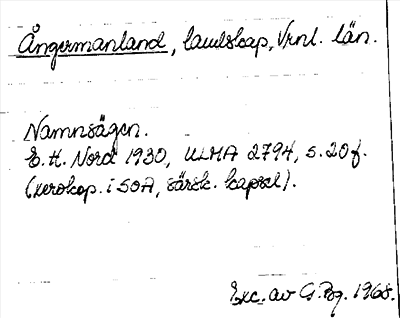 Ångermanland, landskap, Vrnl. län.
Namnsägen.
E. H. Nord 1930, ULMA 2794, s. 20 f.
(xerokop. i SOA, särsk. kapsel).
Exc. av G. Pg. 1968.